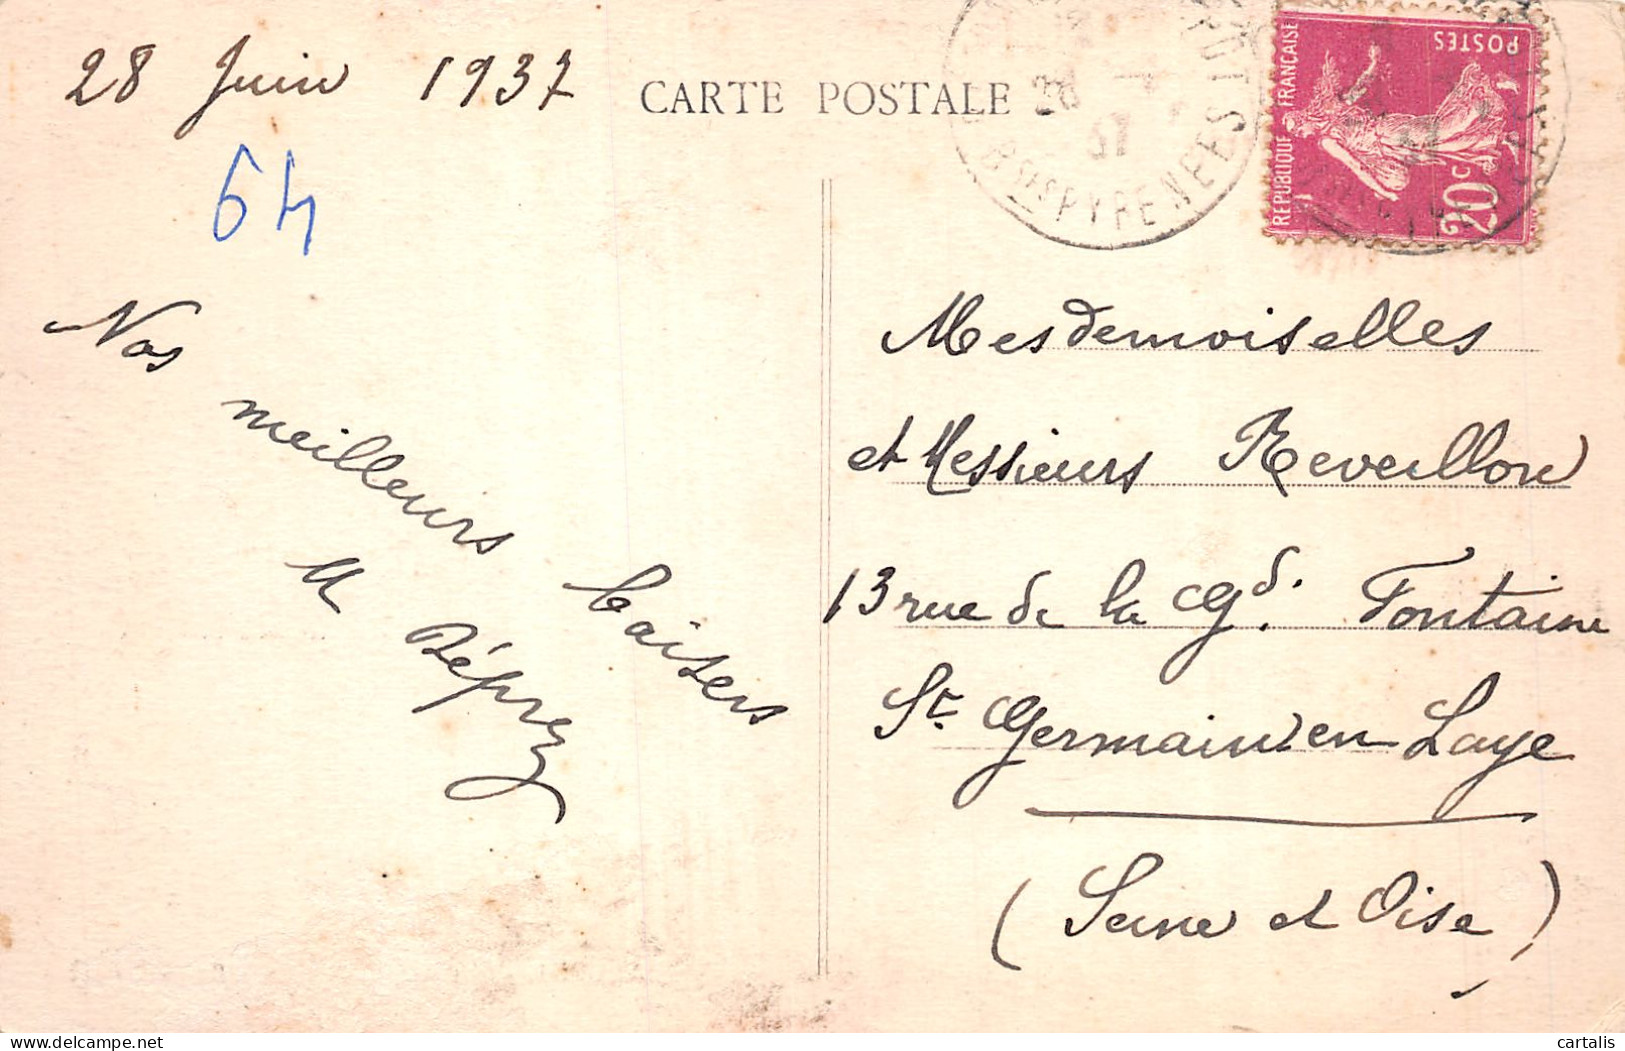 28 Juin 1937
CARTE POSTALE
64
28
37
BSES PYRENEES
REPUBLIQUE FRANÇAISE
POSTES
20c
Nos meilleurs baisers
M Déprez
Mesdemoiselles
et Messieurs Reveillon
13 rue de la Gde. Fontaine
St. Germain en Laye
(Seine et Oise)
delcampe.net
cartalis